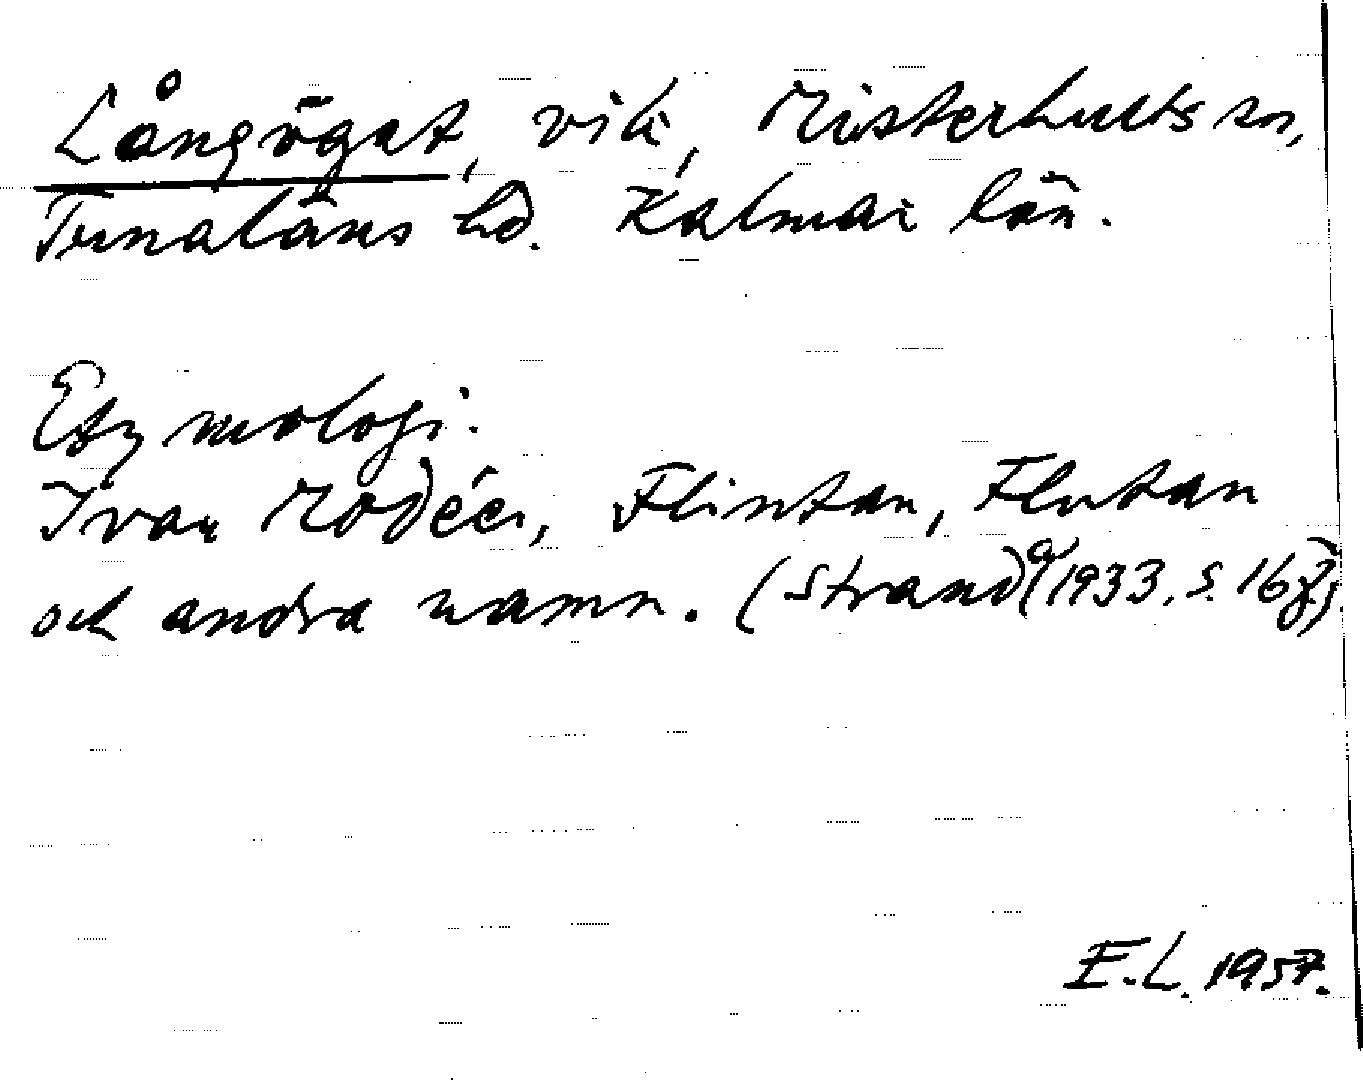 Långögat, vik, Misterhults sn,
Tunaläns hd. Kalmar län.
Etymologi.
Ivar Modéer, Flintan, Flutan
och andra namn. (Strand 1933, s. 167)
E.L. 1957.